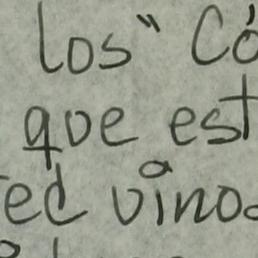 los" Có
que est
ed vino